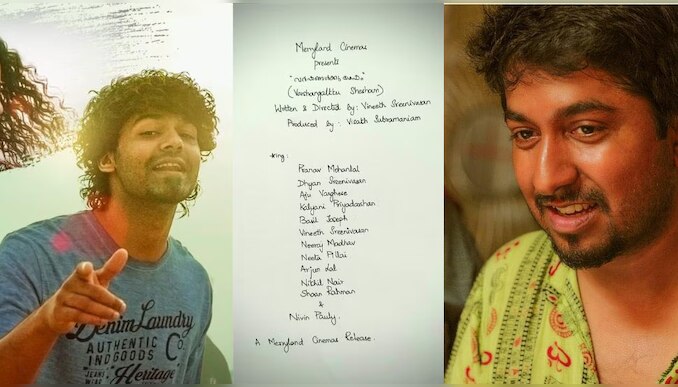 Merryland Cinemas
presents
"വർഷങ്ങൾക്കു ശേഷം"
(Varshangalkku Shesham)
Written & Directed by: Vineeth Sreenivasan
Produced by: Visakh Subramaniam
Pranav Mohanlal
Dhyan Sreenivasan
Aju Varghese
Kalyani Priyadarshan
Basil Joseph
Vineeth Sreenivasan
Neeraj Madhav
Neeta Pillai
Arjun Lal
Nikhil Nair
Shaan Rahman
&
Nivin Pauly.
A Merryland Cinemas Release.
Denim Laundry
AUTHENTIC
INDGOODS
JEANS
WEAR
Heritage